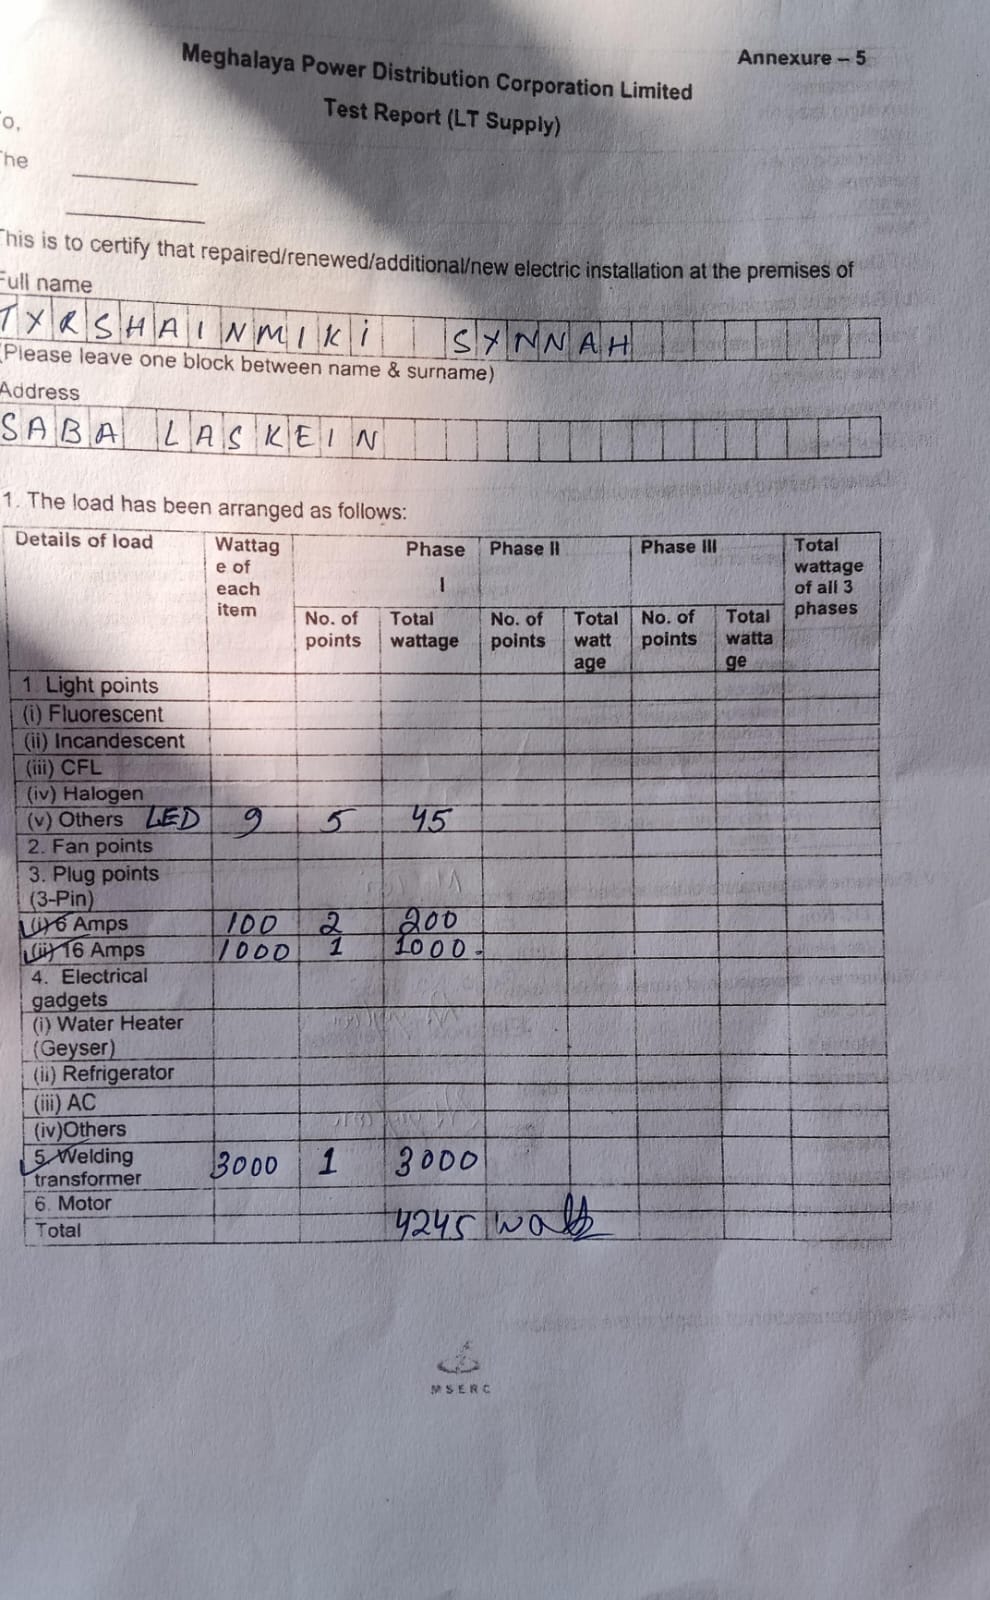 Annexure – 5
Meghalaya Power Distribution Corporation Limited
Test Report (LT Supply)
To,
The
This is to certify that repaired/renewed/additional/new electric installation at the premises of
Full name
TYRSHAINMIKI SYNNAH
(Please leave one block between name & surname)
Address
SABA LASKEIN
1. The load has been arranged as follows:
Details of load Wattage of each item Phase I Phase II Phase III Total wattage of all 3 phases
No. of points Total wattage No. of points Total wattage No. of points Total wattage
1 Light points
(i) Fluorescent
(ii) Incandescent
(iii) CFL
(iv) Halogen
(v) Others LED 9 5 45
2. Fan points
3. Plug points
(3-Pin)
(i) 6 Amps 100 2 200
(ii) 16 Amps 1000 1 1000
4. Electrical
gadgets
(i) Water Heater
(Geyser)
(ii) Refrigerator
(iii) AC
(iv)Others
5. Welding
transformer 3000 1 3000
6. Motor
Total 4245 watts
MSERC